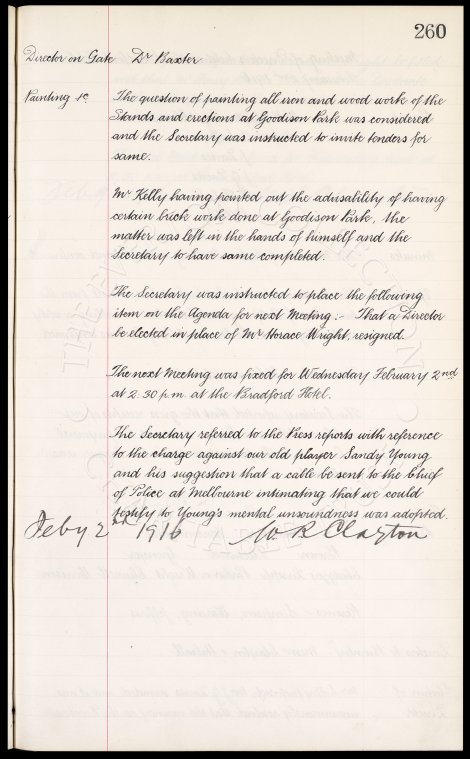 260
Director on Gate Dr Baxter
Painting &c The question of painting all iron and wood work of the
Stands and erections at Goodison Park was considered
and the Secretary was instructed to invite tenders for
same.
Mr Kelly having pointed out the advisability of having
certain brick work done at Goodison Park, the
matter was left in the hands of himself and the
Secretary to have same completed.
The Secretary was instructed to place the following
item on the Agenda for next Meeting:- That a Director
be elected in place of Mr Horace Wright, resigned.
The next Meeting was fixed for Wednesday February 2nd
at 2.30 p.m. at the Bradford Hotel.
The Secretary referred to the Press reports with reference
to the charge against our old player Sandy Young
and his suggestion that a cable be sent to the Chief
of Police at Melbourne intimating that we could
testify to Young's mental unsoundness was adopted.
Feby 2nd 1916 W R Clayton